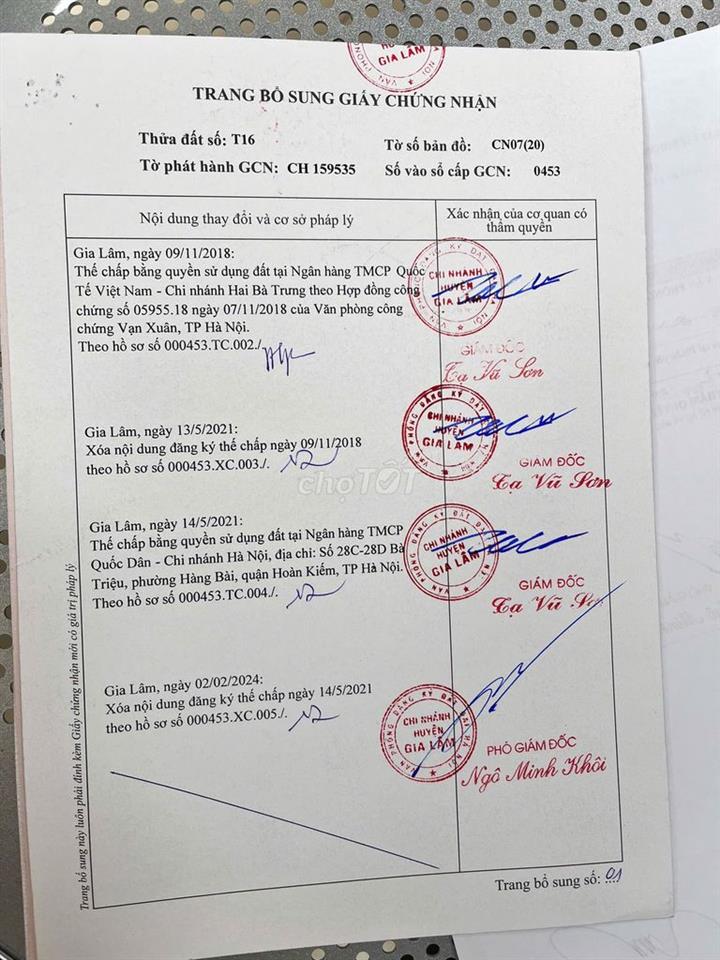 GIA LÂM
TRANG BỔ SUNG GIẤY CHỨNG NHẬN
Thửa đất số: T16
Tờ số bản đồ: CN07(20)
Tờ phát hành GCN: CH 159535
Số vào sổ cấp GCN: 0453
Nội dung thay đổi và cơ sở pháp lý
Xác nhận của cơ quan có
thẩm quyền
Gia Lâm, ngày 09/11/2018:
Thế chấp bằng quyền sử dụng đất tại Ngân hàng TMCP Quốc
Tế Việt Nam - Chi nhánh Hai Bà Trưng theo Hợp đồng công
chứng số 05955.18 ngày 07/11/2018 của Văn phòng công
chứng Vạn Xuân, TP Hà Nội.
Theo hồ sơ số 000453.TC.002./
CHI NHÁNH
HUYỆN
GIA LÂM
GIÁM ĐỐC
Tạ Vũ Sơn
Gia Lâm, ngày 13/5/2021:
Xóa nội dung đăng ký thế chấp ngày 09/11/2018
theo hồ sơ số 000453.XC.003./.
VĂN PHÒNG ĐĂNG KÝ ĐẤT
CHI NHÁNH
HUYỆN
GIA LÂM
GIÁM ĐỐC
Tạ Vũ Sơn
chợTỐT
Gia Lâm, ngày 14/5/2021:
Thế chấp bằng quyền sử dụng đất tại Ngân hàng TMCP
Quốc Dân - Chi nhánh Hà Nội, địa chỉ: Số 28C-28D Bà
Triệu, phường Hàng Bài, quận Hoàn Kiếm, TP Hà Nội.
Theo hồ sơ số 000453.TC.004./.
VĂN PHÒNG ĐĂNG KÝ ĐẤT ĐAI
CHI NHÁNH
HUYỆN
GIA LÂM
GIÁM ĐỐC
Tạ Vũ
Gia Lâm, ngày 02/02/2024:
Xóa nội dung đăng ký thế chấp ngày 14/5/2021
theo hồ sơ số 000453.XC.005./.
VĂN PHÒNG ĐĂNG KÝ ĐẤT ĐAI HÀ NỘI
CHI NHÁNH
HUYỆN
GIA LÂM
PHÓ GIÁM ĐỐC
Ngô Minh Khôi
Trang bổ sung này luôn phải đính kèm Giấy chứng nhận mới có giá trị pháp lý
Trang bổ sung số: 01